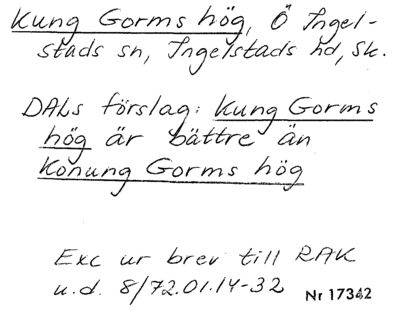 Kung Gorms hög, Ö Ingel-
stads sn, Ingelstads hd, Sk.
DALs förslag: Kung Gorms
hög är bättre än
Konung Gorms hög
Exc ur brev till RAK
u.d. 8/72.01.14-32 Nr 17342